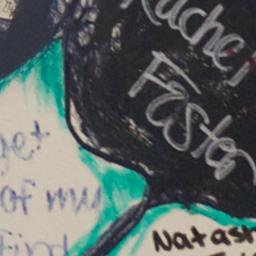 Rachel
Faston
get
of my
find
Natash